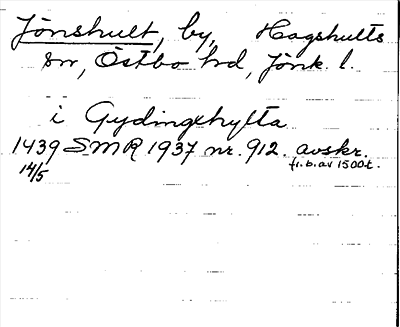 Jönshult, by, Hagshults
sn, Östbo hd, Jönk. l.
i Gydingehylta
1439 SMR 1937 nr. 912. avskr.
14/5 fr. b. av 1500-t.